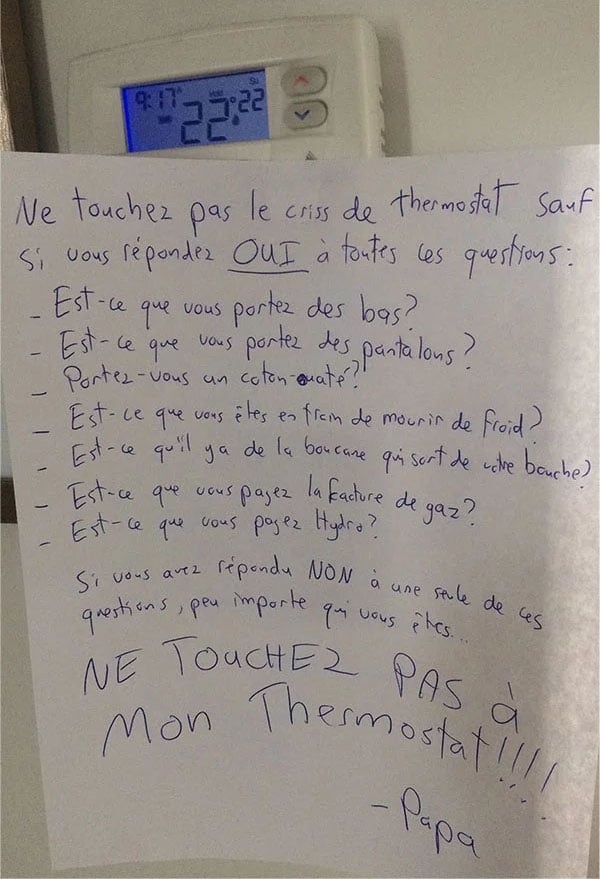 9:17
22° 22
Ne touchez pas le criss de thermostat sauf
si vous répondez OUI à toutes ces questions:
- Est-ce que vous portez des bas?
- Est-ce que vous portez des pantalons?
- Portez-vous un coton-ouaté?
- Est-ce que vous êtes en train de mourir de froid?
- Est-ce qu'il y a de la boucane qui sort de votre bouche?
- Est-ce que vous payez la facture de gaz?
- Est-ce que vous payez Hydro?
Si vous avez répondu NON à une seule de ces
questions, peu importe qui vous êtes...
NE TOUCHEZ PAS à
MON Thermostat!!!!
- Papa